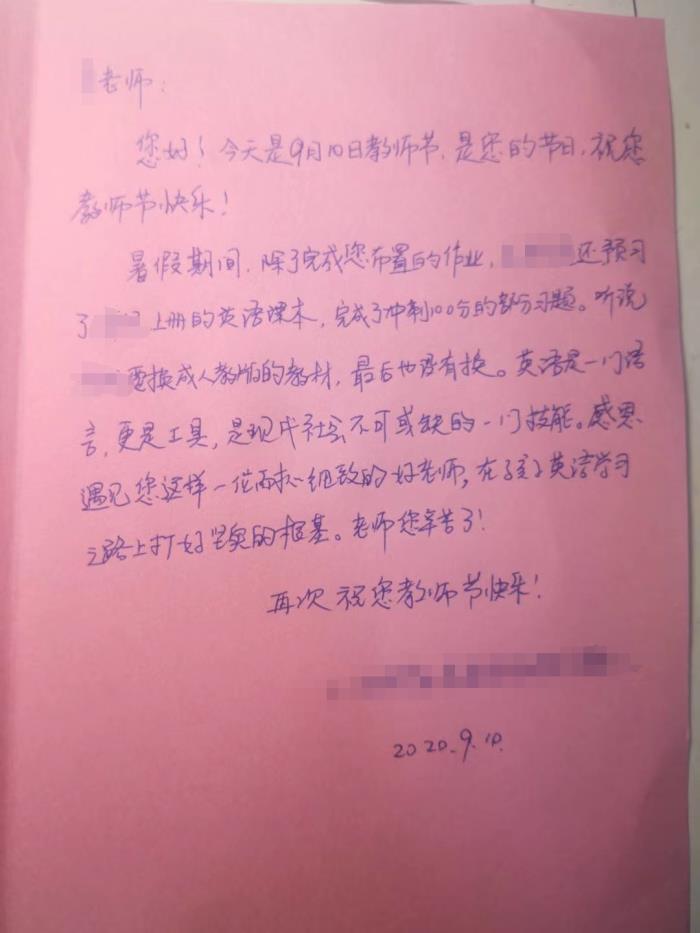 老师：
您好！今天是9月10日教师节，是您的节日，祝您
教师节快乐！
暑假期间，除了完成您布置的作业，还预习
了上册的英语课本，完成了冲刺100分的部分习题。听说
要换成人教版的教材，最后也没有换。英语是一门语
言，更是工具，是现代社会不可或缺的一门技能。感恩
遇见您这样一位耐心细致的好老师，在孩子英语学习
之路上打好坚实的根基。老师您辛苦了！
再次祝您教师节快乐！
2020.9.10.